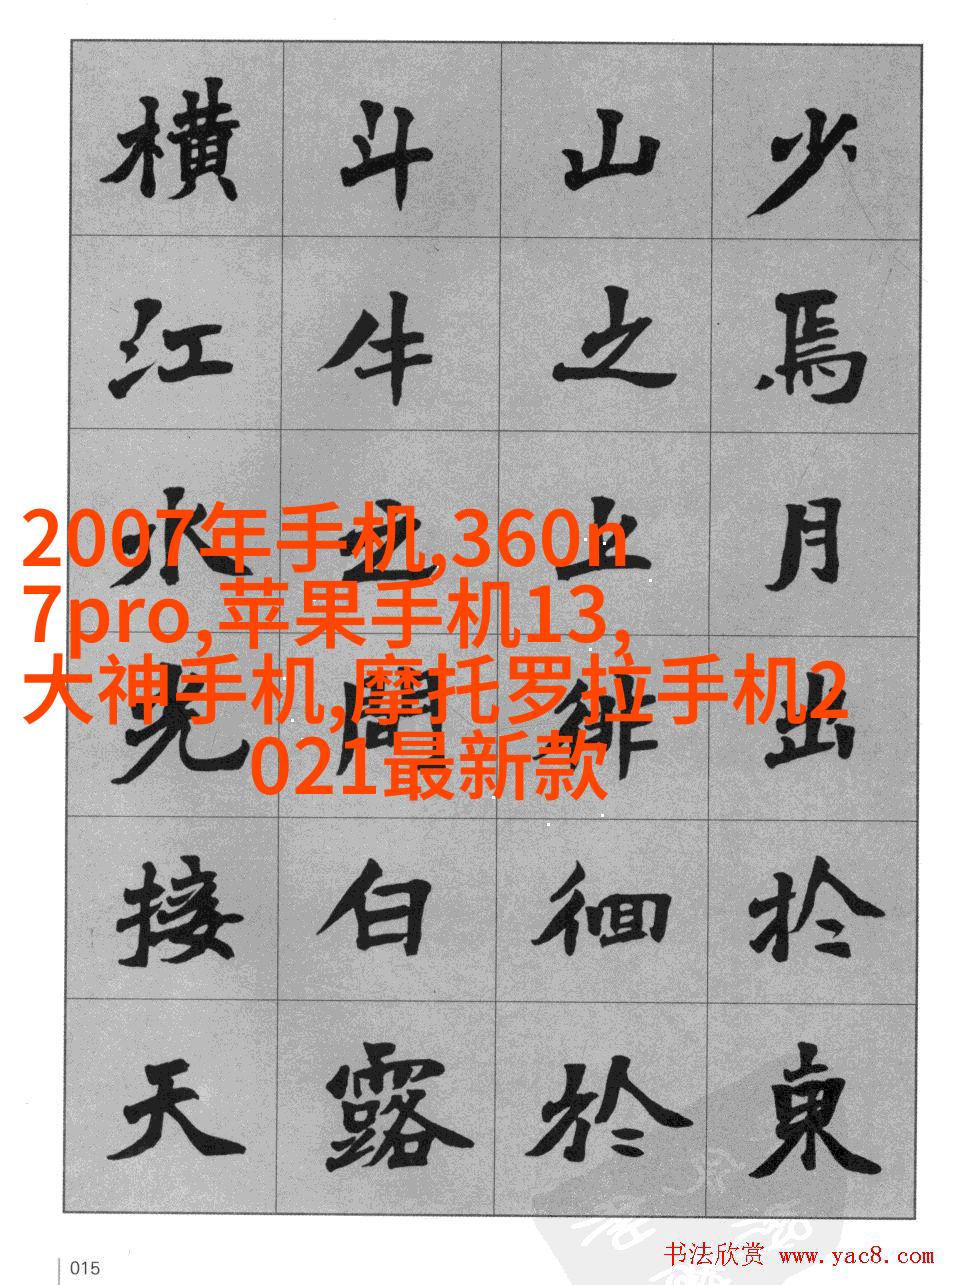 少焉月出於東
山之上徘徊於
斗牛之間白露
橫江水光接天
2007年手机,360n
7pro,苹果手机13,
大神手机,摩托罗拉手机2
021最新款
015
书法欣赏 www.yac8.com